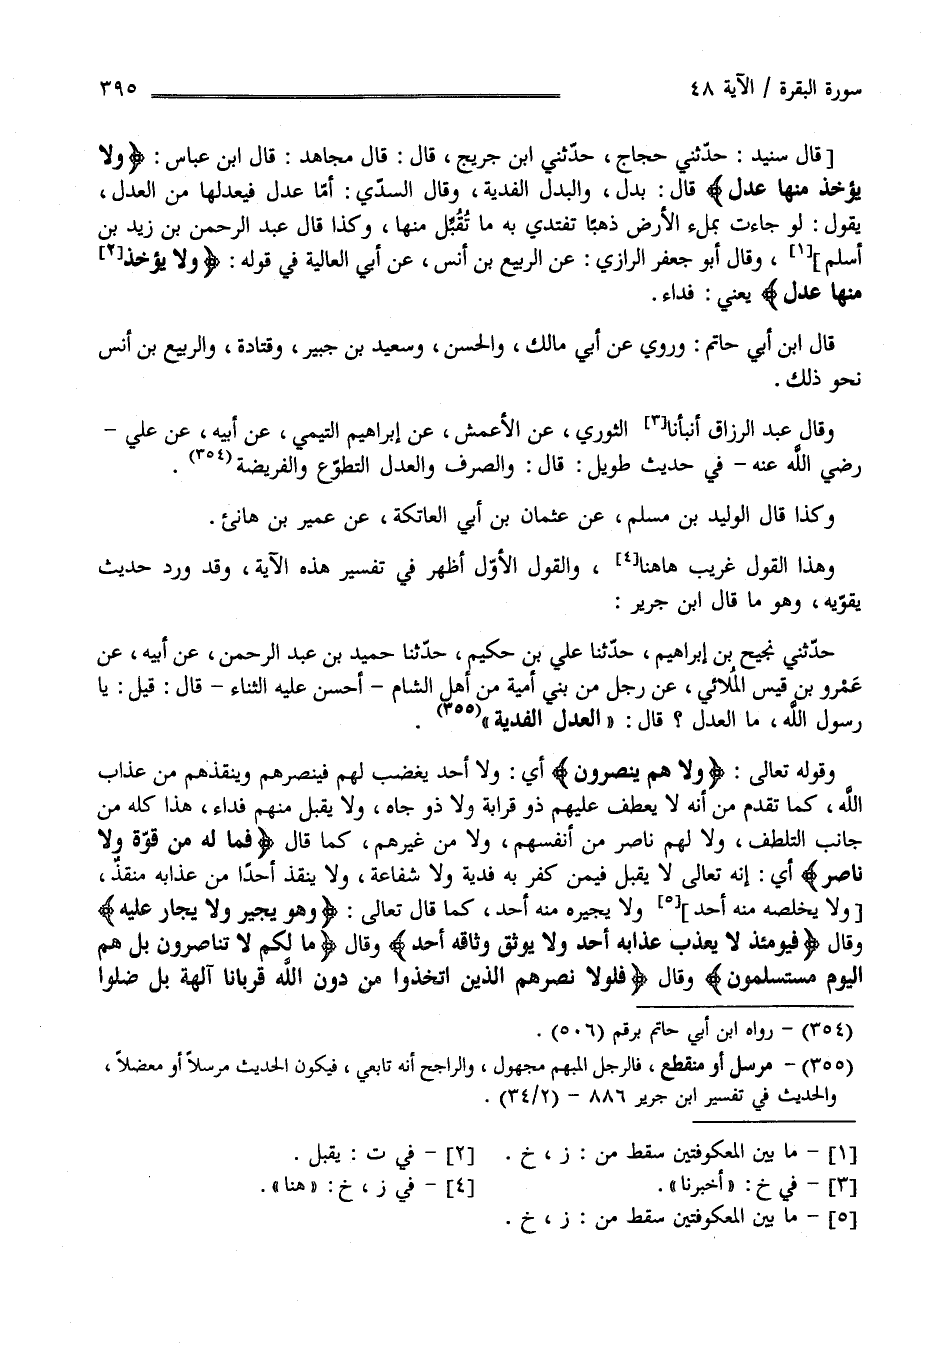 سورة البقرة / الآية ٤٨ ٣٩٥
[ قال سنيد : حدّثني حجاج ، حدّثني ابن جريج ، قال : قال مجاهد : قال ابن عباس : ﴿ ولا
يؤخذ منها عدل ﴾ قال : بدل ، والبدل الفدية ، وقال السدّي : أمّا عدل فيعدلها من العدل ،
يقول : لو جاءت بملء الأرض ذهبًا تفتدي به ما تُقُبِّل منها ، وكذا قال عبد الرحمن بن زيد بن
أسلم ][١] ، وقال أبو جعفر الرازي : عن الربيع بن أنس ، عن أبي العالية في قوله : ﴿ ولا يؤخذ[٢]
منها عدل ﴾ يعني : فداء .
قال ابن أبي حاتم : وروي عن أبي مالك ، والحسن ، وسعيد بن جبير ، وقتادة ، والربيع بن أنس
نحو ذلك .
وقال عبد الرزاق أنبأنا[٣] الثوري ، عن الأعمش ، عن إبراهيم التيمي ، عن أبيه ، عن علي –
رضي اللَّه عنه – في حديث طويل : قال : والصرف والعدل التطوّع والفريضة(٣٥٤) .
وكذا قال الوليد بن مسلم ، عن عثمان بن أبي العاتكة ، عن عمير بن هانئ .
وهذا القول غريب هاهنا[٤] ، والقول الأوّل أظهر في تفسير هذه الآية ، وقد ورد حديث
يقوّيه ، وهو ما قال ابن جرير :
حدّثني نجيح بن إبراهيم ، حدّثنا علي بن حكيم ، حدّثنا حميد بن عبد الرحمن ، عن أبيه ، عن
عَمْرو بن قيس المُلائي ، عن رجل من بني أمية من أهل الشام – أحسن عليه الثناء – قال : قيل : يا
رسول اللَّه ، ما العدل ؟ قال : « العدل الفدية »(٣٥٥) .
وقوله تعالى : ﴿ ولا هم ينصرون ﴾ أي : ولا أحد يغضب لهم فينصرهم وينقذهم من عذاب
اللَّه ، كما تقدم من أنه لا يعطف عليهم ذو قرابة ولا ذو جاه ، ولا يقبل منهم فداء ، هذا كله من
جانب التلطف ، ولا لهم ناصر من أنفسهم ، ولا من غيرهم ، كما قال ﴿ فما له من قوّة ولا
ناصر ﴾ أي : إنه تعالى لا يقبل فيمن كفر به فدية ولا شفاعة ، ولا ينقذ أحدًا من عذابه منقذ ،
[ ولا يخلصه منه أحد ][٥] ولا يجيره منه أحد ، كما قال تعالى : ﴿ وهو يجير ولا يجار عليه ﴾
وقال ﴿ فيومئذ لا يعذب عذابه أحد ولا يوثق وثاقه أحد ﴾ وقال ﴿ ما لكم لا تناصرون بل هم
اليوم مستسلمون ﴾ وقال ﴿ فلولا نصرهم الذين اتخذوا من دون اللَّه قربانا آلهة بل ضلوا
(٣٥٤) – رواه ابن أبي حاتم برقم (٥٠٦) .
(٣٥٥) – مرسل أو منقطع ، فالرجل المبهم مجهول ، والراجح أنه تابعي ، فيكون الحديث مرسلاً أو معضلاً ،
والحديث في تفسير ابن جرير ٨٨٦ – (٣٤/٢) .
[١] – ما بين المعكوفتين سقط من : ز ، خ . [٢] – في ت : يقبل .
[٣] – في خ : « أخبرنا » . [٤] – في ز ، خ : « هنا » .
[٥] – ما بين المعكوفتين سقط من : ز ، خ .